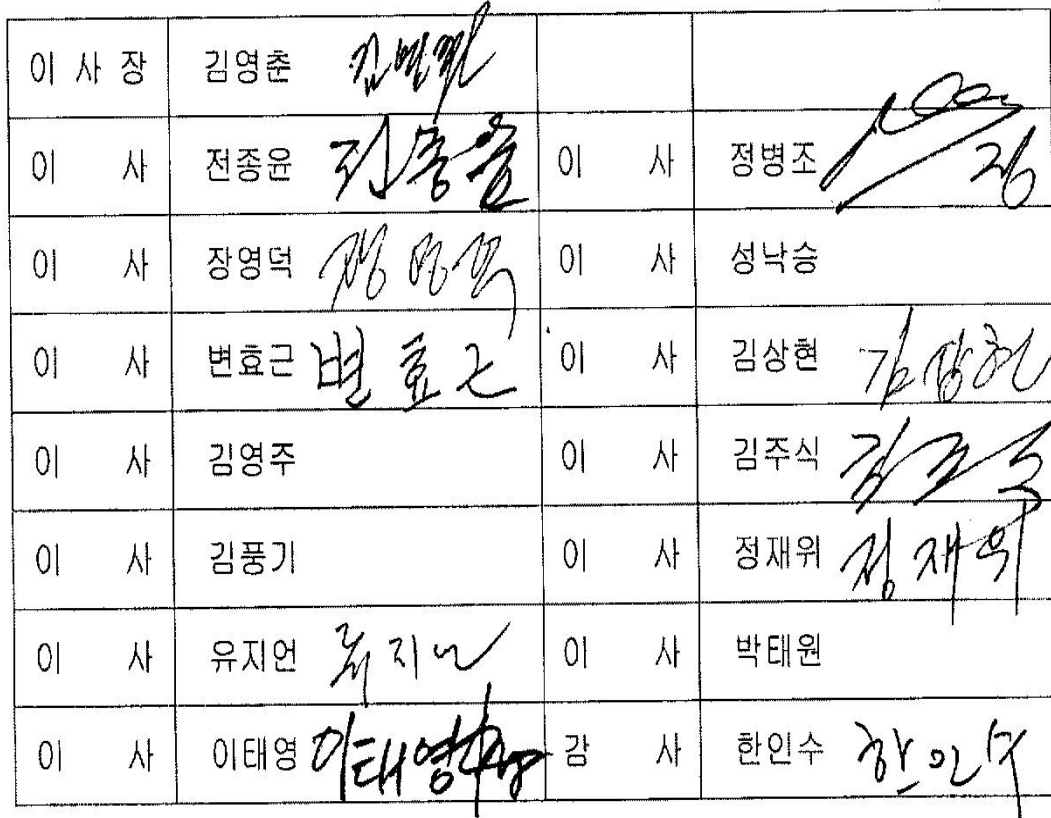 이 사 장 김영춘
이 사 전종윤 전종윤 이 사 정병조 정
이 사 장영덕 장영덕 이 사 성낙승
이 사 변효근 변효근 이 사 김상현 김상현
이 사 김영주 이 사 김주식 김주식
이 사 김풍기 이 사 정재위 정재위
이 사 유지언 류지언 이 사 박태원
이 사 이태영 이태영 감 사 한인수 한인수